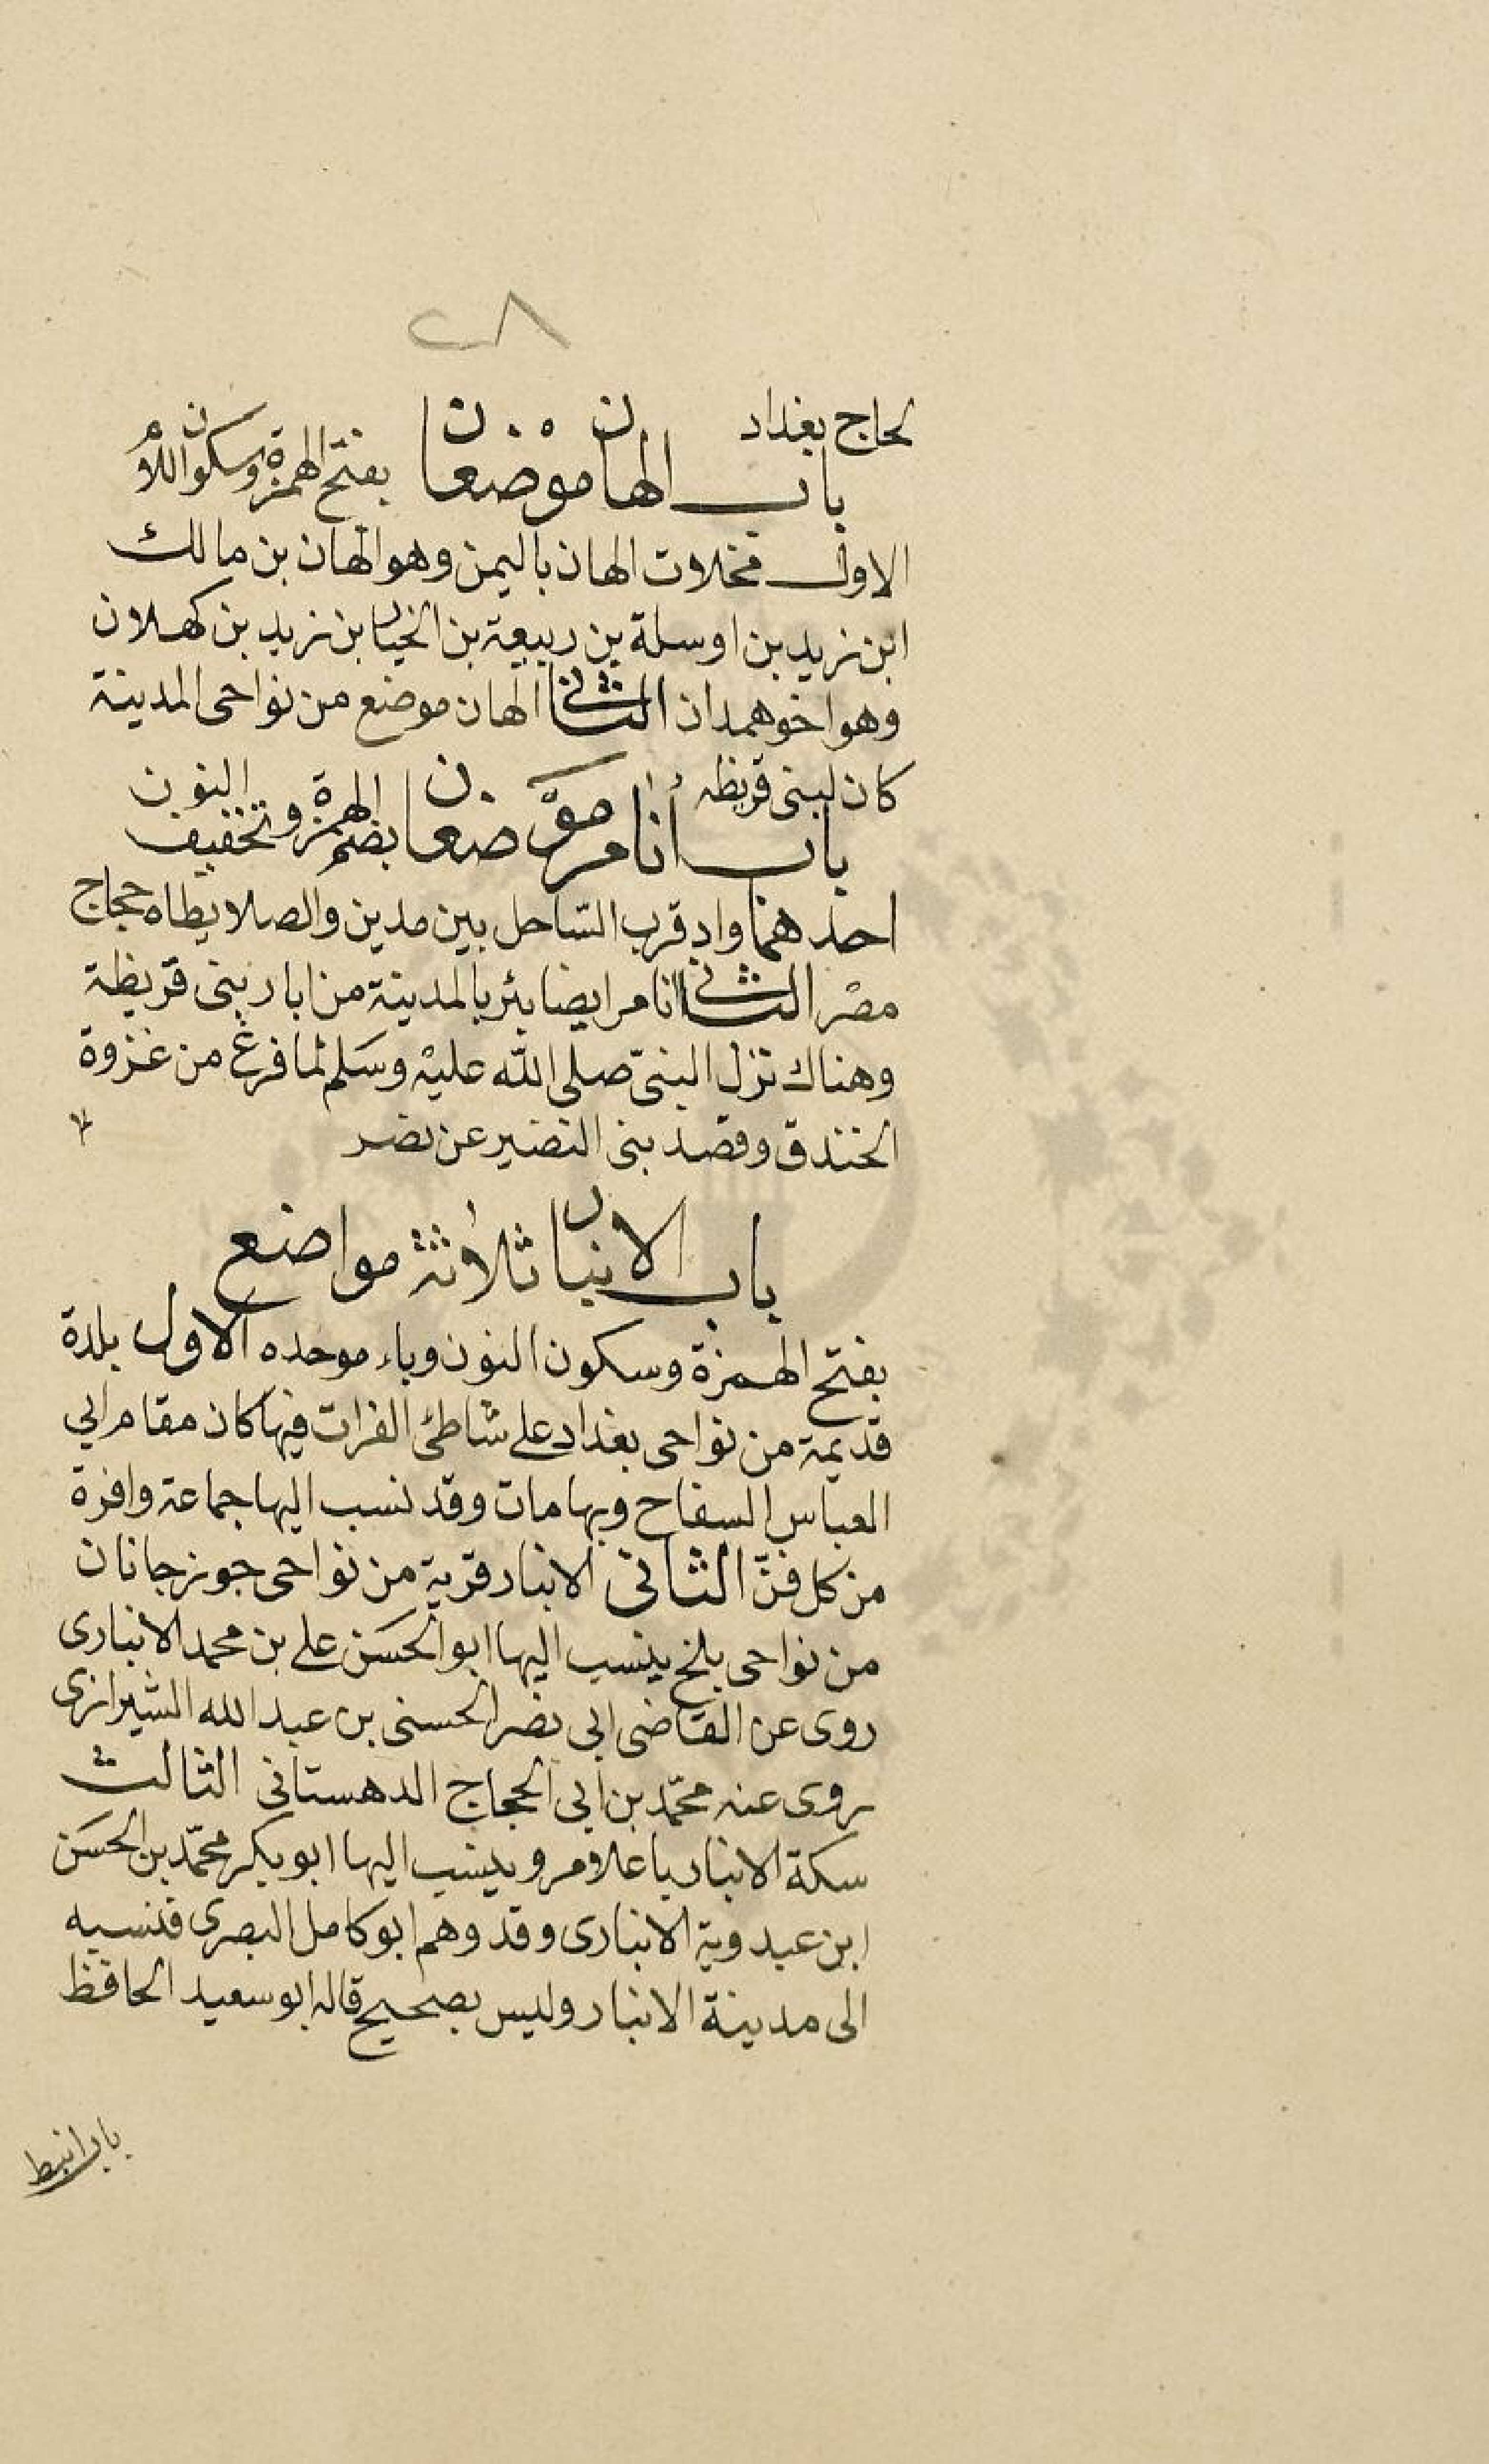 ٢٨
لحاج بغداد
باب الهان موضعان بفتح الهمزة وسكون اللام
الاول مخلات الهان باليمن وهو الهان بن مالك
ابن زيد بن اوسلة بن ربيعة بن الخيار بن زيد بن كهلان
وهو اخو همدان الثاني الهان موضع من نواحى المدينة
كان لبنى قريظه
باب أنا مر موضعان بضم الهمزة وتخفيف النون
احدهما واد قرب السّاحل بين مدين والصلا يطاه حجاج
مصْر الثاني انا مر ايضا بئر بالمدينة من ابار بنى قريظة
وهناك نزل النبىّ صلى الله عليْه وسَلم لما فرغ من غزوة
الخندق وقصد بنى النضير عن نصر
باب الانبار ثلاثة مواضع
بفتح الهمزة وسكون النون وباء موحده الاول بلدة
قديمة من نواحى بغداد على شاطئ الفرات فيها كان مقام ابي
العباس السفاح وبها مات وقد نسب اليها جماعة وافرة
من كل فنّ الثانى الانبار قرية من نواحى جوزجانان
من نواحى بلخ ينسب اليها ابو الحسَن على بن محمد الانبارى
روى عن القاضى ابى نصر الحسنى بن عبد الله الشيرازى
روى عنه محمّد بن ابى الحجاج الدهستانى الثالث
سكة الانبار باعلا مرو ينسب اليها ابو بكر محمّد بن الحسَن
ابن عبدوية الانبارى وقد وهم ابو كامل البصرى فنسبه
الى مدينة الانبار وليس بصحيح قاله ابو سعيد الحافظ
باب انبط